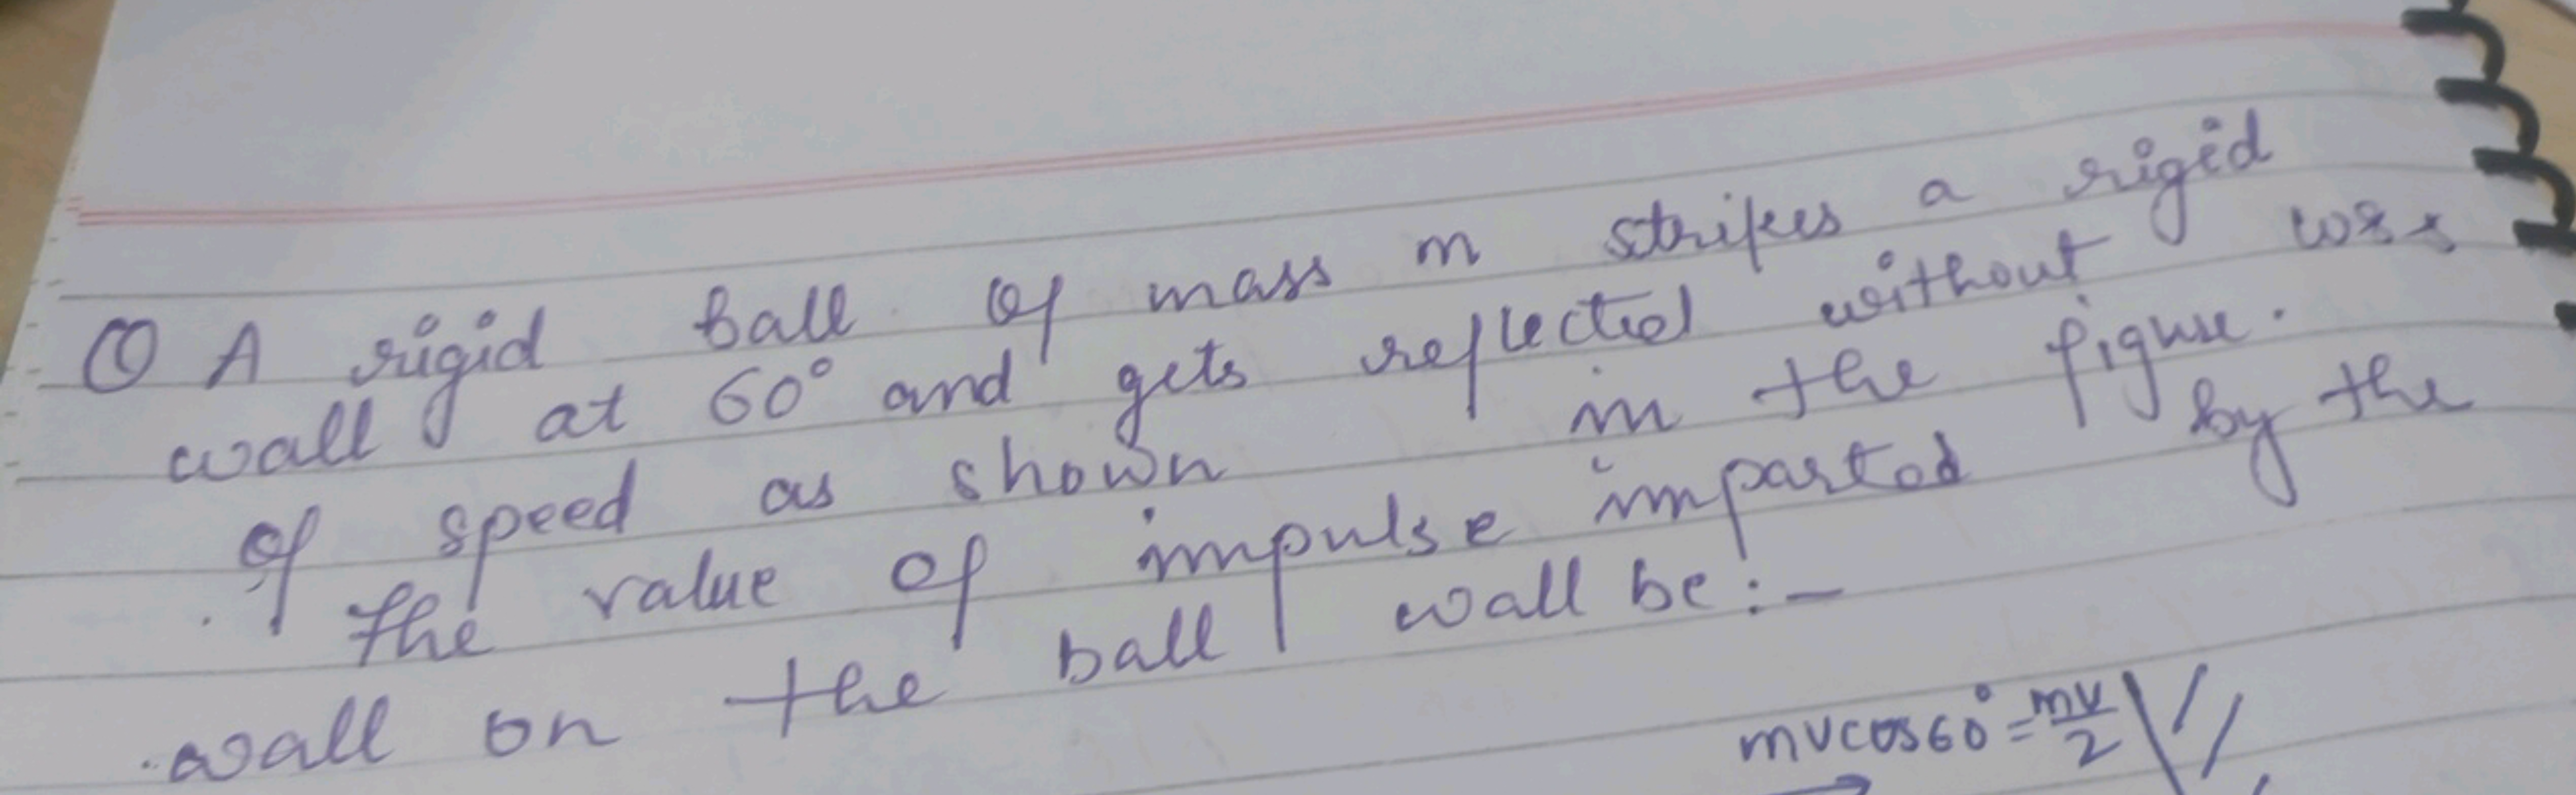 Q A rigid ball of mass m strikes a rigid
wall at 60° and gets reflected without loss
of speed as shown in the figure.
The value of impulse imparted by the
wall on the ball wall be:-
mvcos60° = mv/2